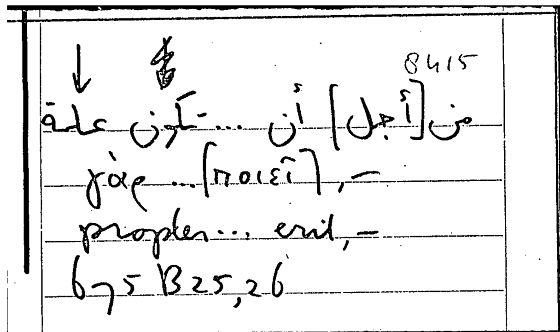 8415
من [أجل] أن ... تكون علة
γὰρ ... [ποιεῖ], –
propter ... erit, –
675 B25,26